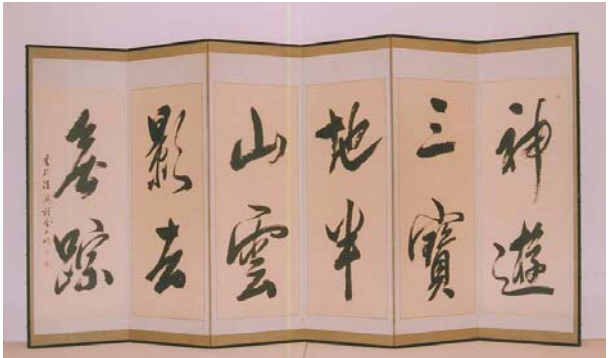 神遊
三寶
地半
山雲
影去
無踪